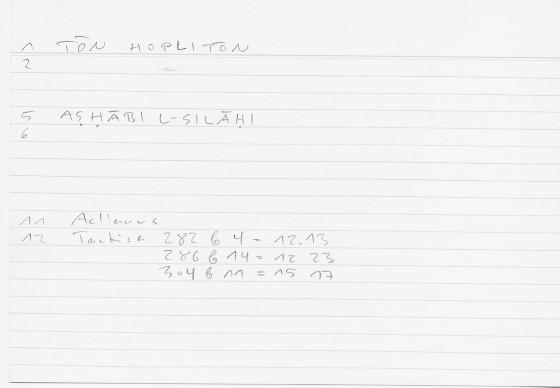 1 TŌN HOPLITŌN
2
5 AṢḤĀBI L-SILĀḤI
6
11 Aelianus
12 Tactica 282 b 4 = 12.13
286 b 14 = 12.23
304 b 11 = 15.17